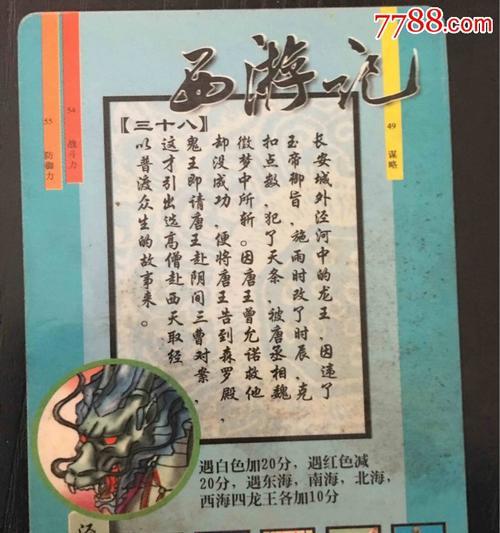 7788.com
中国收藏热线
西游记
55 防御力
54 战斗力
49 谋略
【三十八】
长安城外泾河中的龙王，因违了
玉帝御旨，施雨时改了时辰，克
扣点数，犯了天条，被唐丞相魏
徵梦中所斩。因唐王曾允诺救他
却没成功，便将唐王告到森罗殿，
鬼王即请唐王赴阴间三曹对案，
这才引出选高僧赴西天取经
以普渡众生的故事来。
遇白色加20分，遇红色减
20分，遇东海，南海，北海，
西海四龙王各加10分